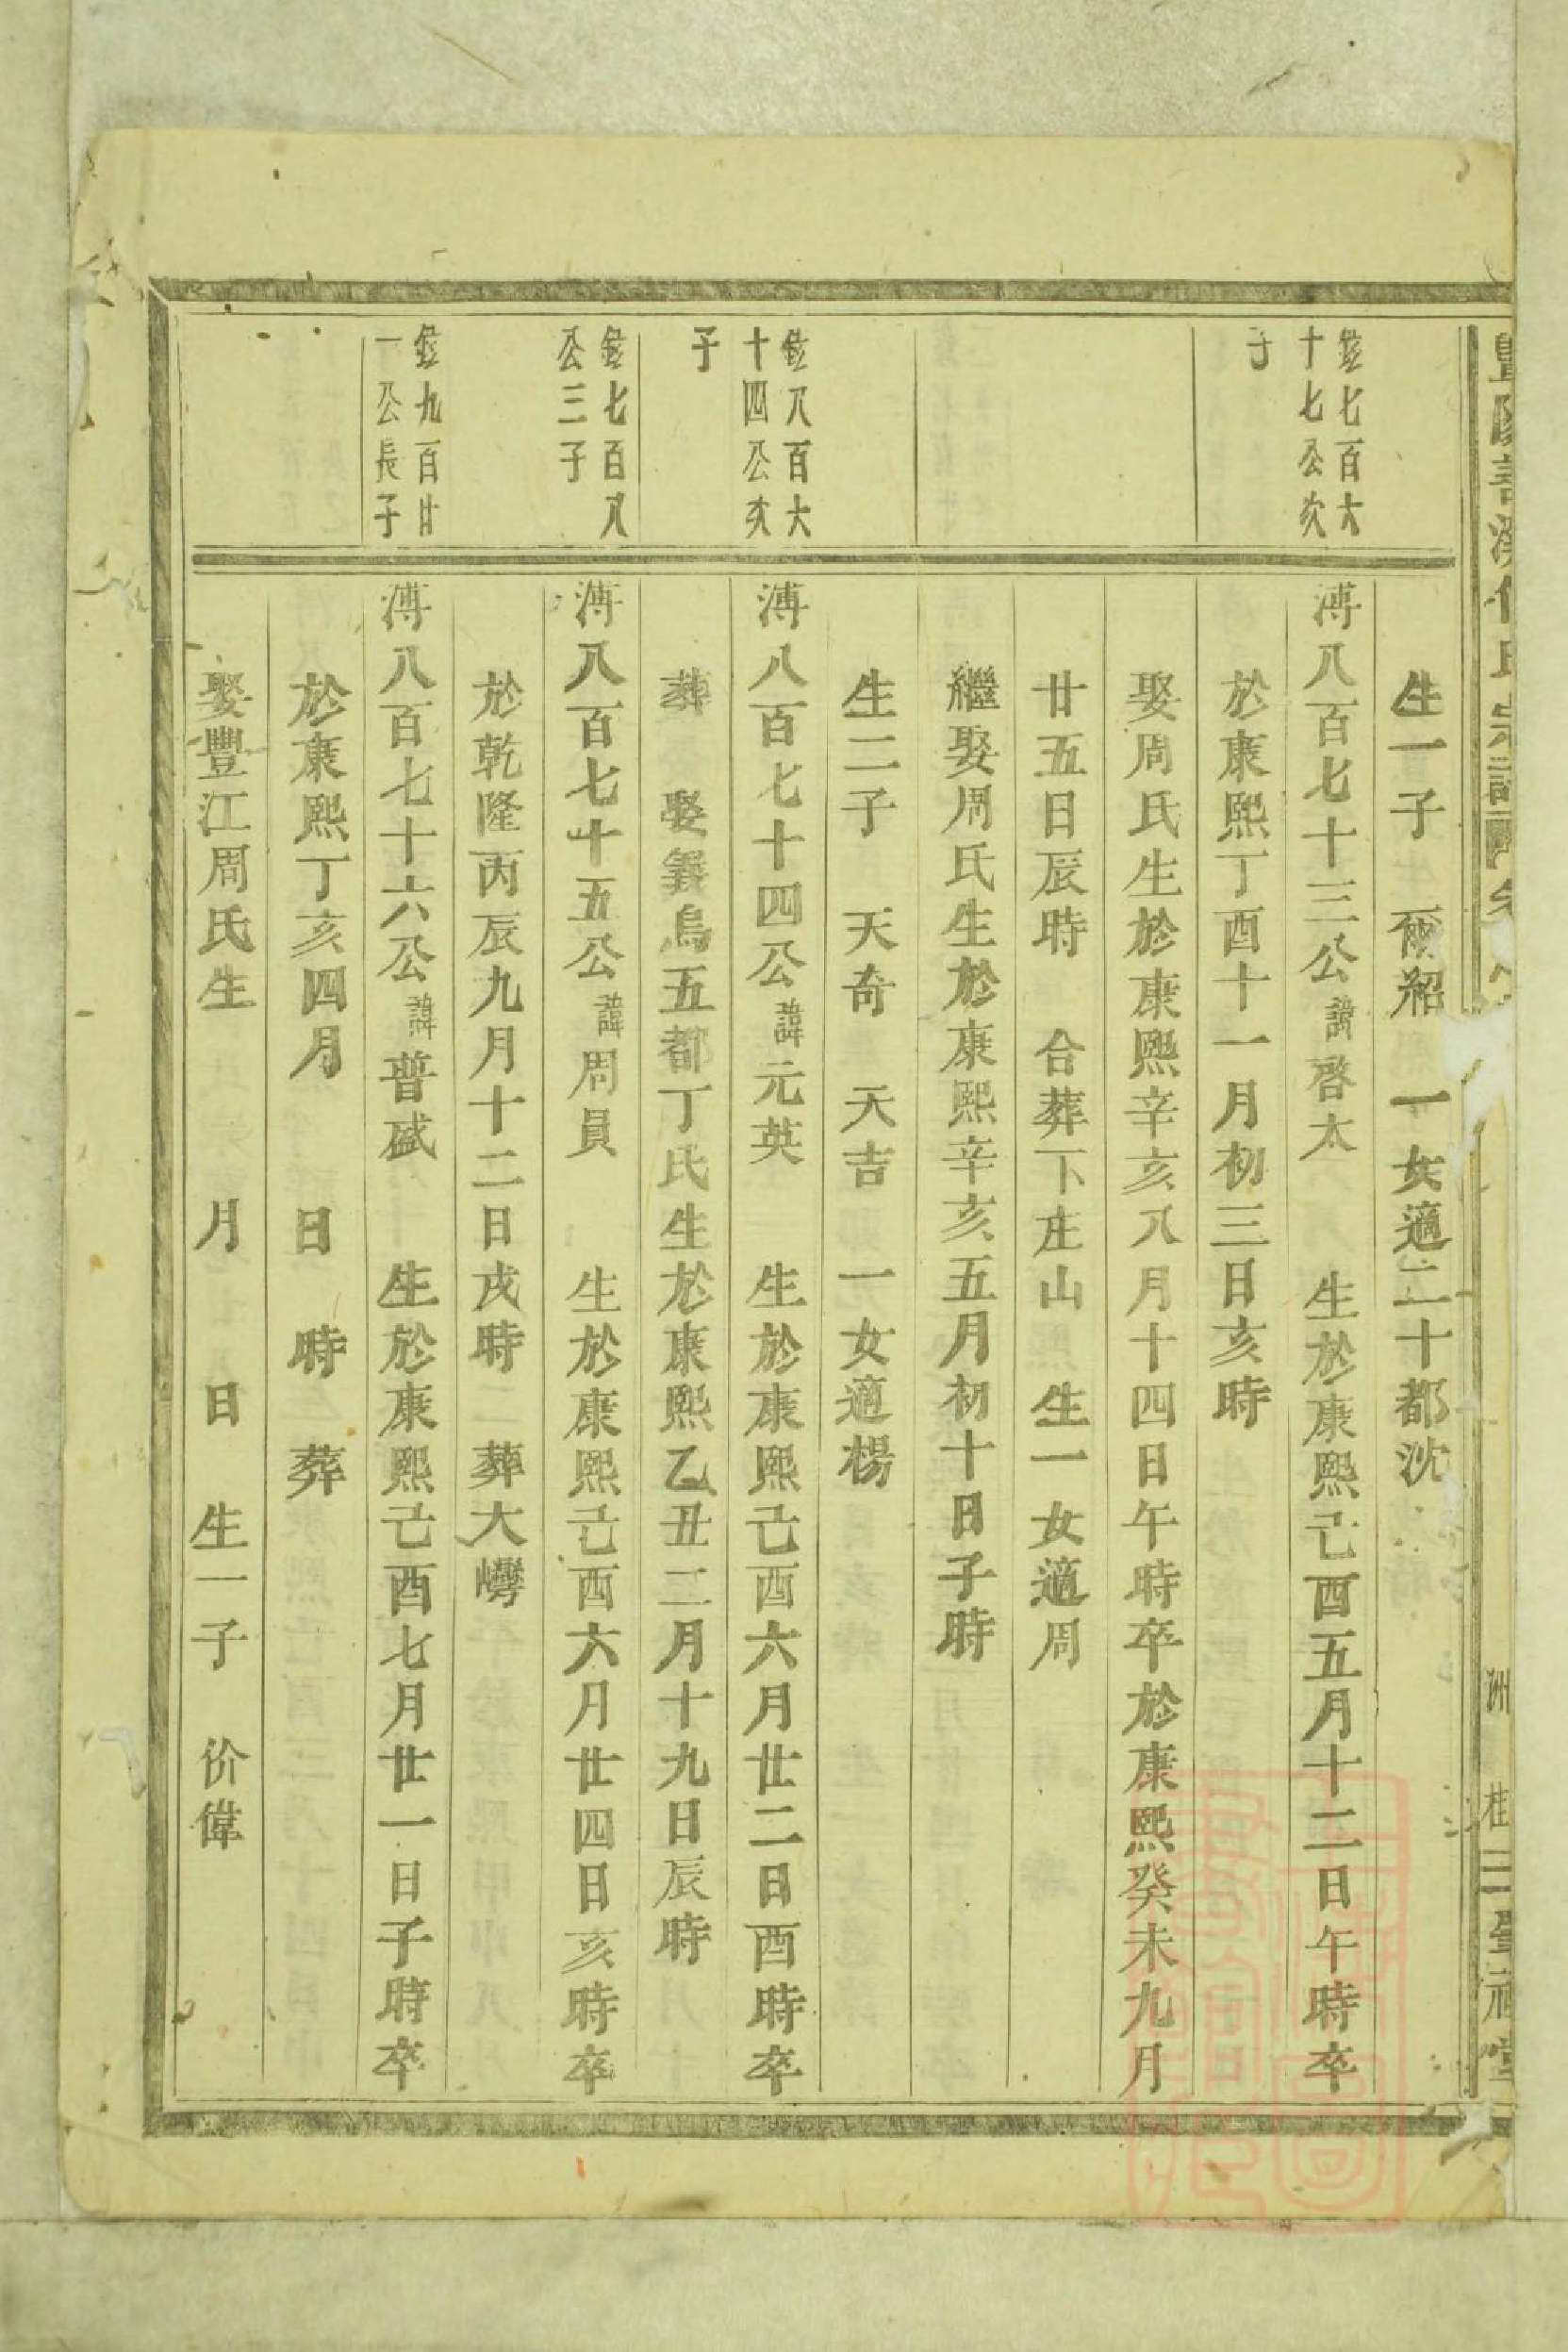 生一子 爾紹 一女適二十都沈
鉉七百六
十七公次
子
溥八百七十三公諱啓太 生於康熙己酉五月十二日午時卒
於康熙丁酉十一月初三日亥時
娶周氏生於康熙辛亥八月十四日午時卒於康熙癸未九月
廿五日辰時 合葬下庄山 生一女適周
繼娶周氏生於康熙辛亥五月初十日子時
生二子 天奇 天吉 一女適楊
鉉八百六
十四公次
子
溥八百七十四公諱元英 生於康熙己酉六月廿二日酉時卒
葬 娶義烏五都丁氏生於康熙乙丑二月十九日辰時
鉉七百八
公三子
溥八百七十五公諱周員 生於康熙己酉六月廿四日亥時卒
於乾隆丙辰九月十二日戌時 葬大㘭
鉉九百廿
一公長子
溥八百七十六公諱普盛 生於康熙己酉七月廿一日子時卒
於康熙丁亥四月 日 時 葬
娶豐江周氏生 月 日 生一子 价偉